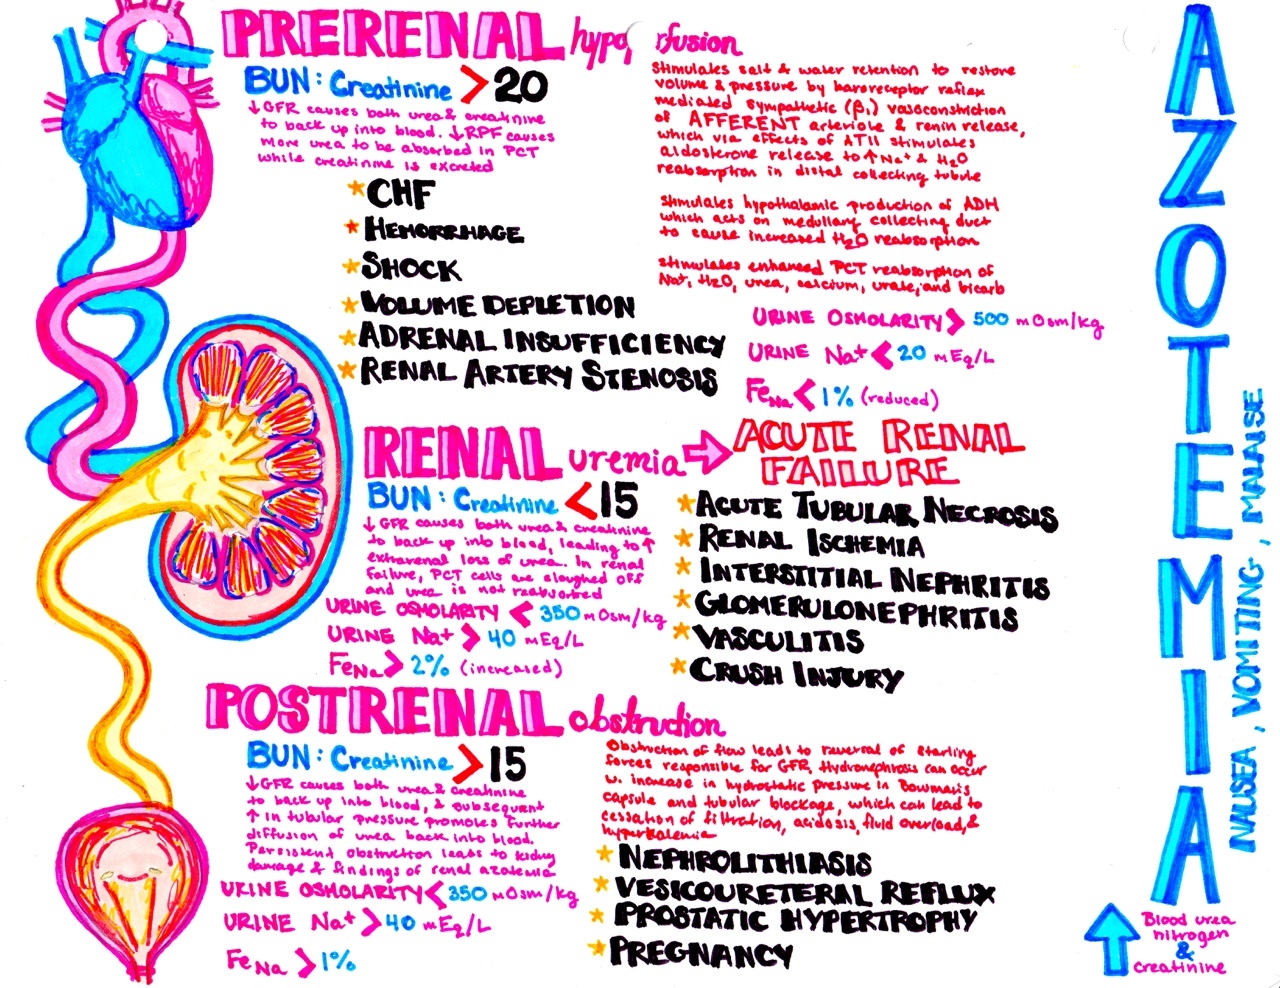 PRERENAL hypo rfusion
BUN: Creatinine >20
↓GFR causes both urea & creatinine
to back up into blood. ↓RPF causes
more urea to be absorbed in PCT
while creatinine is excreted
*CHF
*HEMORRHAGE
*SHOCK
*VOLUME DEPLETION
*ADRENAL INSUFFICIENCY
*RENAL ARTERY STENOSIS
Stimulates salt & water retention to restore
volume & pressure by baroreceptor reflex
mediated sympathetic (β₁) vasoconstriction
of AFFERENT arteriole & renin release,
which via effects of ATII stimulates
aldosterone release to ↑Na⁺ & H₂O
reabsorption in distal collecting tubule
stimulates hypothalamic production of ADH
which acts on medullary collecting duct
to cause increased H₂O reabsorption
stimulates enhanced PCT reabsorption of
Na⁺, H₂O, urea, calcium, urate, and bicarb
URINE OSMOLARITY > 500 mOsm/kg
URINE Na⁺ < 20 mEq/L
FeNa < 1% (reduced)
RENAL uremia → ACUTE RENAL
FAILURE
BUN: Creatinine <15
↓GFR causes both urea & creatinine
to back up into blood, leading to ↑
extrarenal loss of urea. In renal
failure, PCT cells are sloughed off
and urea is not reabsorbed
URINE OSMOLARITY < 350 mOsm/kg
URINE Na⁺ > 40 mEq/L
FeNa > 2% (increased)
*ACUTE TUBULAR NECROSIS
*RENAL ISCHEMIA
*INTERSTITIAL NEPHRITIS
*GLOMERULONEPHRITIS
*VASCULITIS
*CRUSH INJURY
POSTRENAL obstruction
BUN: Creatinine >15
↓GFR causes both urea & creatinine
to back up into blood, & subsequent
↑ in tubular pressure promotes further
diffusion of urea back into blood.
Persistent obstruction leads to kidney
damage & findings of renal azotemia
URINE OSMOLARITY < 350 mOsm/kg
URINE Na⁺ > 40 mEq/L
FeNa > 1%
Obstruction of flow leads to reversal of Starling
forces responsible for GFR. Hydronephrosis can occur
w. increase in hydrostatic pressure in Bowman's
capsule and tubular blockage, which can lead to
cessation of filtration, acidosis, fluid overload, &
hyperkalemia
*NEPHROLITHIASIS
*VESICOURETERAL REFLUX
*PROSTATIC HYPERTROPHY
*PREGNANCY
AZOTEMIA
NAUSEA, VOMITING, MALAISE
↑ Blood urea
nitrogen
&
creatinine